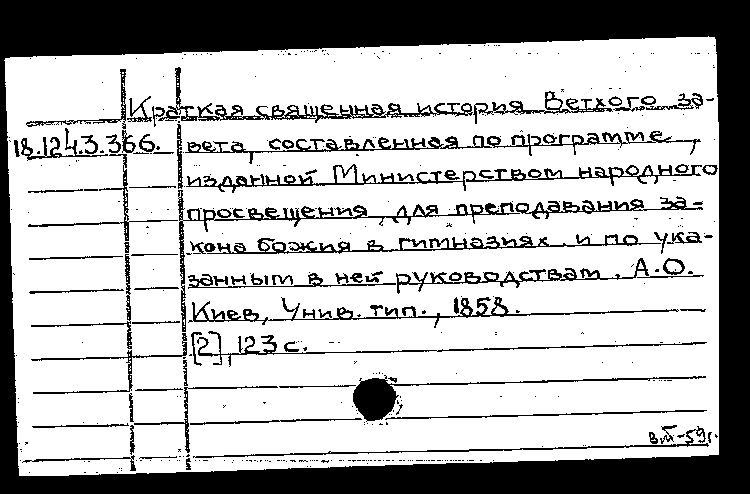 Краткая священная история Ветхого за-
18.124.3.366. вета, составленная по программе,
изданной Министерством народного
просвещения, для преподавания за-
кона божия в гимназиях и по ука-
занным в ней руководствам. А.О.
Киев, Унив. тип., 1858.
[2], 123 с.
-59г.